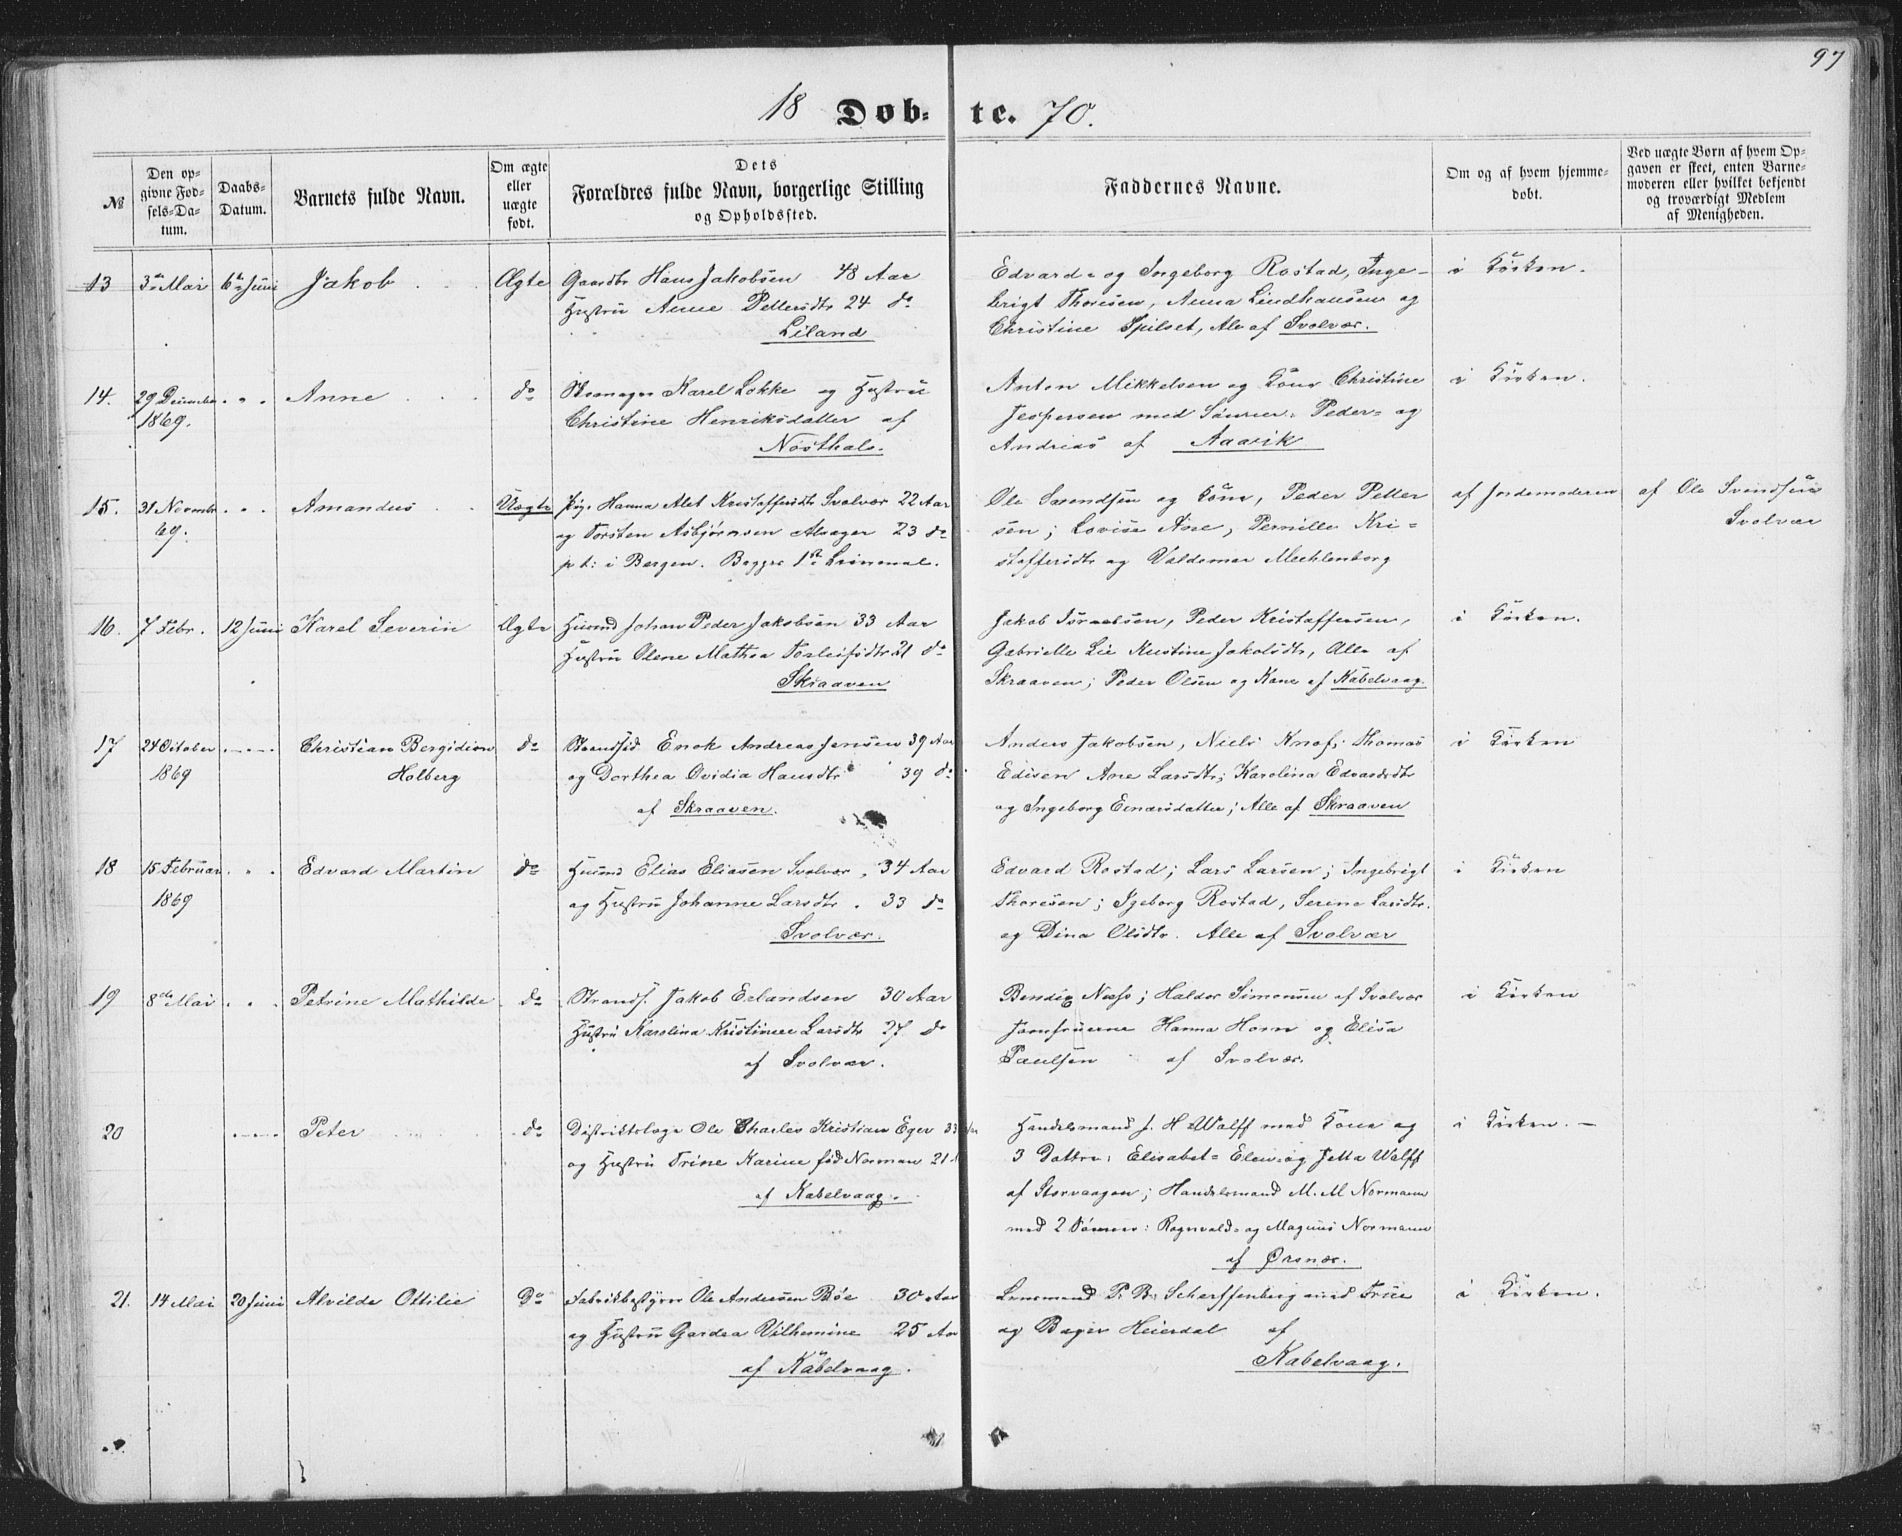 97
18 Døb- te. 70.
№
Den op-
givne Fød-
sels-Da-
tum.
Daabs-
Datum.
Barnets fulde Navn.
Om ægte
eller
uægte
født.
Dets
Forældres fulde Navn, borgerlige Stilling
og Opholdssted.
Faddernes Navne.
Om og af hvem hjemme-
døbt.
Ved uægte Børn af hvem Op-
gaven er skeet, enten Barne-
moderen eller hvilket bekjendt
og troværdigt Medlem
af Menigheden.
13 3die Mai 6te Juni Jakob Ægte Gaardbr Hans Jakobsen 48 Aar
Hustru Anne Pettersdtr 24 do
Liland
Edvard- og Ingeborg Rostad, Inge-
brigt Thoresen, Anna Lindhausen og
Christine Spilset, Ale af Svolvær.
i Kirken.
14. 29 December " " Anne do Karel Løkke og Hustru
1869. Christine Henriksdatter af
Nøsthals.
Anton Mikkelsen og Kone Christine
Jespersen med Sønner: Peder- og
Andreas af Aavik
i Kirken.
15. 31 Novembr " " Amandus Uægte Pige Hanna Alet Kristoffersdtr Svolvær 22 Aar
69. og Torsten Asbjørnsen 23 do
p t: i Bergen. Begges 1ste Leiermaal.
Ole Svendsen og Kone, Peder Petter
sen; Lovise Aae, Pernille Kri-
stoffersdtr og Valdemar Mechlenborg
af Jordemoderen
af Ole Svendsen
Svolvær
16. 7 Febr. 12 Juni Karel Severin Ægte Husmd Johan Peder Jakobsen 33 Aar
Hustru Olene Mathea Torleifsdtr 21 do
Skraaven
Jakob Peder Kristoffersen,
Gabrielle Lie Kristine Jakobsdtr, Alle af
Skraaven; Peder Olsen og Kone af Kabelvaag.
i Kirken.
17 24 October " " Christian Bergidion do Strandsid Enok Andreas Jensen 39 Aar
1869 Holberg og Dorthea Ovidia Hansdtr 39 do
af Skraaven.
Anders Jakobsen, Niels Knof; Thomas
Edisen Ane Larsdtr; Karolina Edvardsdtr
og Ingeborg Einarsdatter; Alle af Skraaven
i Kirken
18 15 Februar " " Edvard Martin do Husmd Elias Eliasen Svolvær 34 Aar
1869 og Hustru Johanne Larsdtr 33 do
Svolvær.
Edvard Rostad; Lars Larsen; Ingebrigt
Thoresen; Igeborg Rostad, Serene Larsdtr.
og Dina Olsdtr. Alle af Svolvær
i Kirken
19 8de Mai " " Petrine Mathilde do Strands. Jakob Erlandsen 30 Aar
Hustru Karolina Kristinee Larsdtr 27 do
af Svolvær.
Bendix Næss; Haldor Simonsen af Svolvær
Jomfruerne Hanna Horn og Elisa
Paulsen af Svolvær.
i Kirken
20 " " Peter do Distriktslæge Ole Charles Kristian Eger 33 Aar
og Hustru Trine Karine fød Norman 21
af Kabelvaag.
Handelsmand J. H. Wolff med Kone og
3 Døttre: Elisabet- Elen- og Jetta Wolff
af Storvaagen; Handelsmand M. M Normann
med 2 Sønner: Ragnvald- og Magnus Normann
af Ørsnæs.
i Kirken.
21. 14 Mai 20 Juni Alvilde Ottilie Do Fabrikbestyrer Ole Andersen Bøe 30 Aar
og Hustru Gardea Vilhemine 25 Aar
af Kabelvaag.
Lensmand P. B. Scherffenberg med Frue
og Bager Heierdal af
Kabelvaag.
i Kirken.